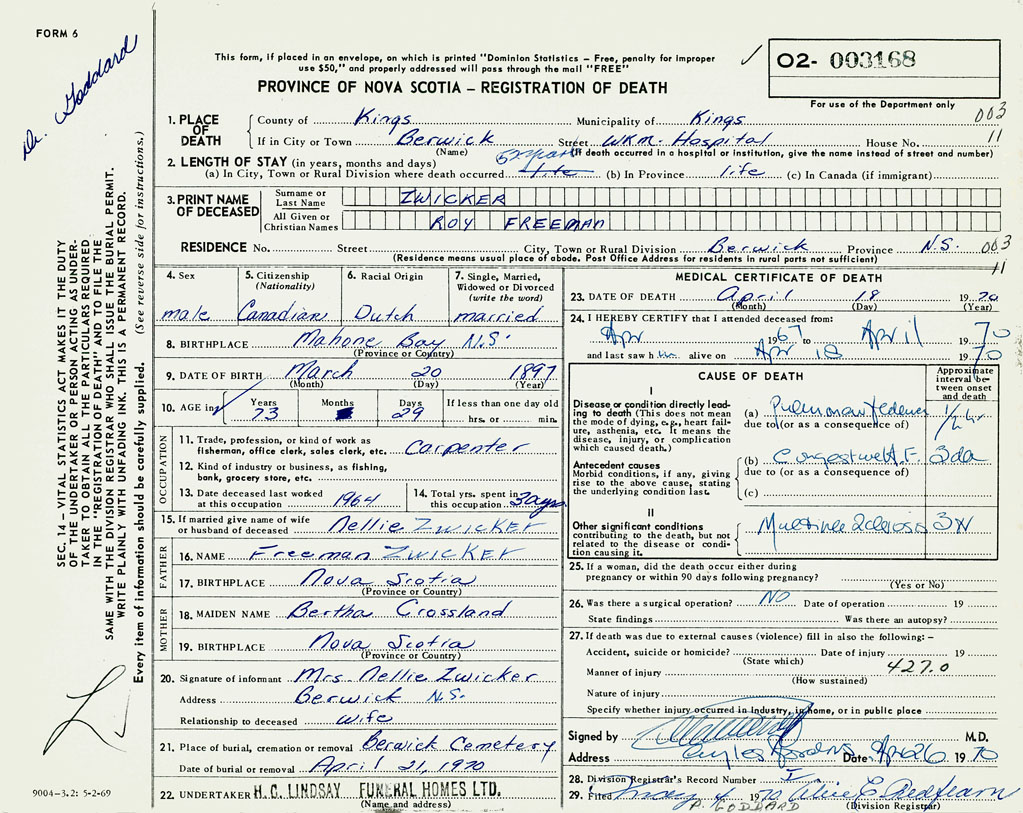 FORM 6
Dr. Goddard
This form, if placed in an envelope, on which is printed "Dominion Statistics – Free, penalty for improper
use $50," and properly addressed will pass through the mail "FREE"
PROVINCE OF NOVA SCOTIA – REGISTRATION OF DEATH
02- 003168
For use of the Department only
003
11
1. PLACE OF DEATH
County of Kings Municipality of Kings
If in City or Town Berwick Street WKM-Hospital House No.
(Name) (If death occurred in a hospital or institution, give the name instead of street and number)
2. LENGTH OF STAY (in years, months and days)
52 years
(a) In City, Town or Rural Division where death occurred life (b) In Province life (c) In Canada (if immigrant)
3. PRINT NAME OF DECEASED
Surname or Last Name ZWICKER
All Given or Christian Names ROY FREEMAN
RESIDENCE No. Street City, Town or Rural Division Berwick Province N.S. 003
11
(Residence means usual place of abode. Post Office Address for residents in rural parts not sufficient)
4. Sex male
5. Citizenship (Nationality) Canadian
6. Racial Origin Dutch
7. Single, Married, Widowed or Divorced (write the word) married
8. BIRTHPLACE Mahone Bay N.S.
(Province or Country)
9. DATE OF BIRTH March 20 1897
(Month) (Day) (Year)
10. AGE in Years 73 Months Days 29 If less than one day old hrs. or min.
OCCUPATION
11. Trade, profession, or kind of work as fisherman, office clerk, sales clerk, etc. Carpenter
12. Kind of industry or business, as fishing, bank, grocery store, etc.
13. Date deceased last worked at this occupation 1964
14. Total yrs. spent in this occupation
15. If married give name of wife or husband of deceased Nellie Zwicker
FATHER
16. NAME Freeman Zwicker
17. BIRTHPLACE Nova Scotia
(Province or Country)
MOTHER
18. MAIDEN NAME Bertha Crossland
19. BIRTHPLACE Nova Scotia
(Province or Country)
20. Signature of informant Mrs Nellie Zwicker
Address Berwick N.S.
Relationship to deceased wife
21. Place of burial, cremation or removal Berwick Cemetery
Date of burial or removal April 21, 1970
22. UNDERTAKER H. C. LINDSAY FUNERAL HOMES LTD.
(Name and address)
MEDICAL CERTIFICATE OF DEATH
23. DATE OF DEATH April 18 1970
(Month) (Day) (Year)
24. I HEREBY CERTIFY that I attended deceased from:
Apr 1967 to April 70
and last saw him alive on Apr 18 1970
CAUSE OF DEATH
Approximate interval between onset and death
I
Disease or condition directly leading to death (This does not mean the mode of dying, e.g., heart failure, asthenia, etc. It means the disease, injury, or complication which caused death.)
(a) Pulmonary Edema 1/2 hr
due to (or as a consequence of)
Antecedent causes
Morbid conditions, if any, giving rise to the above cause, stating the underlying condition last.
(b) Congestive H.F. 3 da
due to (or as a consequence of)
(c)
II
Other significant conditions contributing to the death, but not related to the disease or condition causing it.
Multiple Sclerosis
25. If a woman, did the death occur either during
pregnancy or within 90 days following pregnancy?
(Yes or No)
26. Was there a surgical operation? NO Date of operation 19
State findings Was there an autopsy?
27. If death was due to external causes (violence) fill in also the following: –
Accident, suicide or homicide? Date of injury 19
(State which)
Manner of injury 427.0
(How sustained)
Nature of injury
Specify whether injury occurred in Industry, in home, or in public place
Signed by M.D.
Address Date Apr 26 1970
28. Division Registrar's Record Number
29. Filed May 4 1970
P. GODDARD
(Division Registrar)
SEC. 14 – VITAL STATISTICS ACT MAKES IT THE DUTY
OF THE UNDERTAKER OR PERSON ACTING AS UNDER-
TAKER TO OBTAIN ALL THE PARTICULARS REQUIRED
IN THE "REGISTRATION OF DEATH" AND TO FILE THE
SAME WITH THE DIVISION REGISTRAR WHO SHALL ISSUE THE BURIAL PERMIT.
WRITE PLAINLY WITH UNFADING INK. THIS IS A PERMANENT RECORD.
Every item of information should be carefully supplied. (See reverse side for instructions.)
9004-3.2: 5-2-69